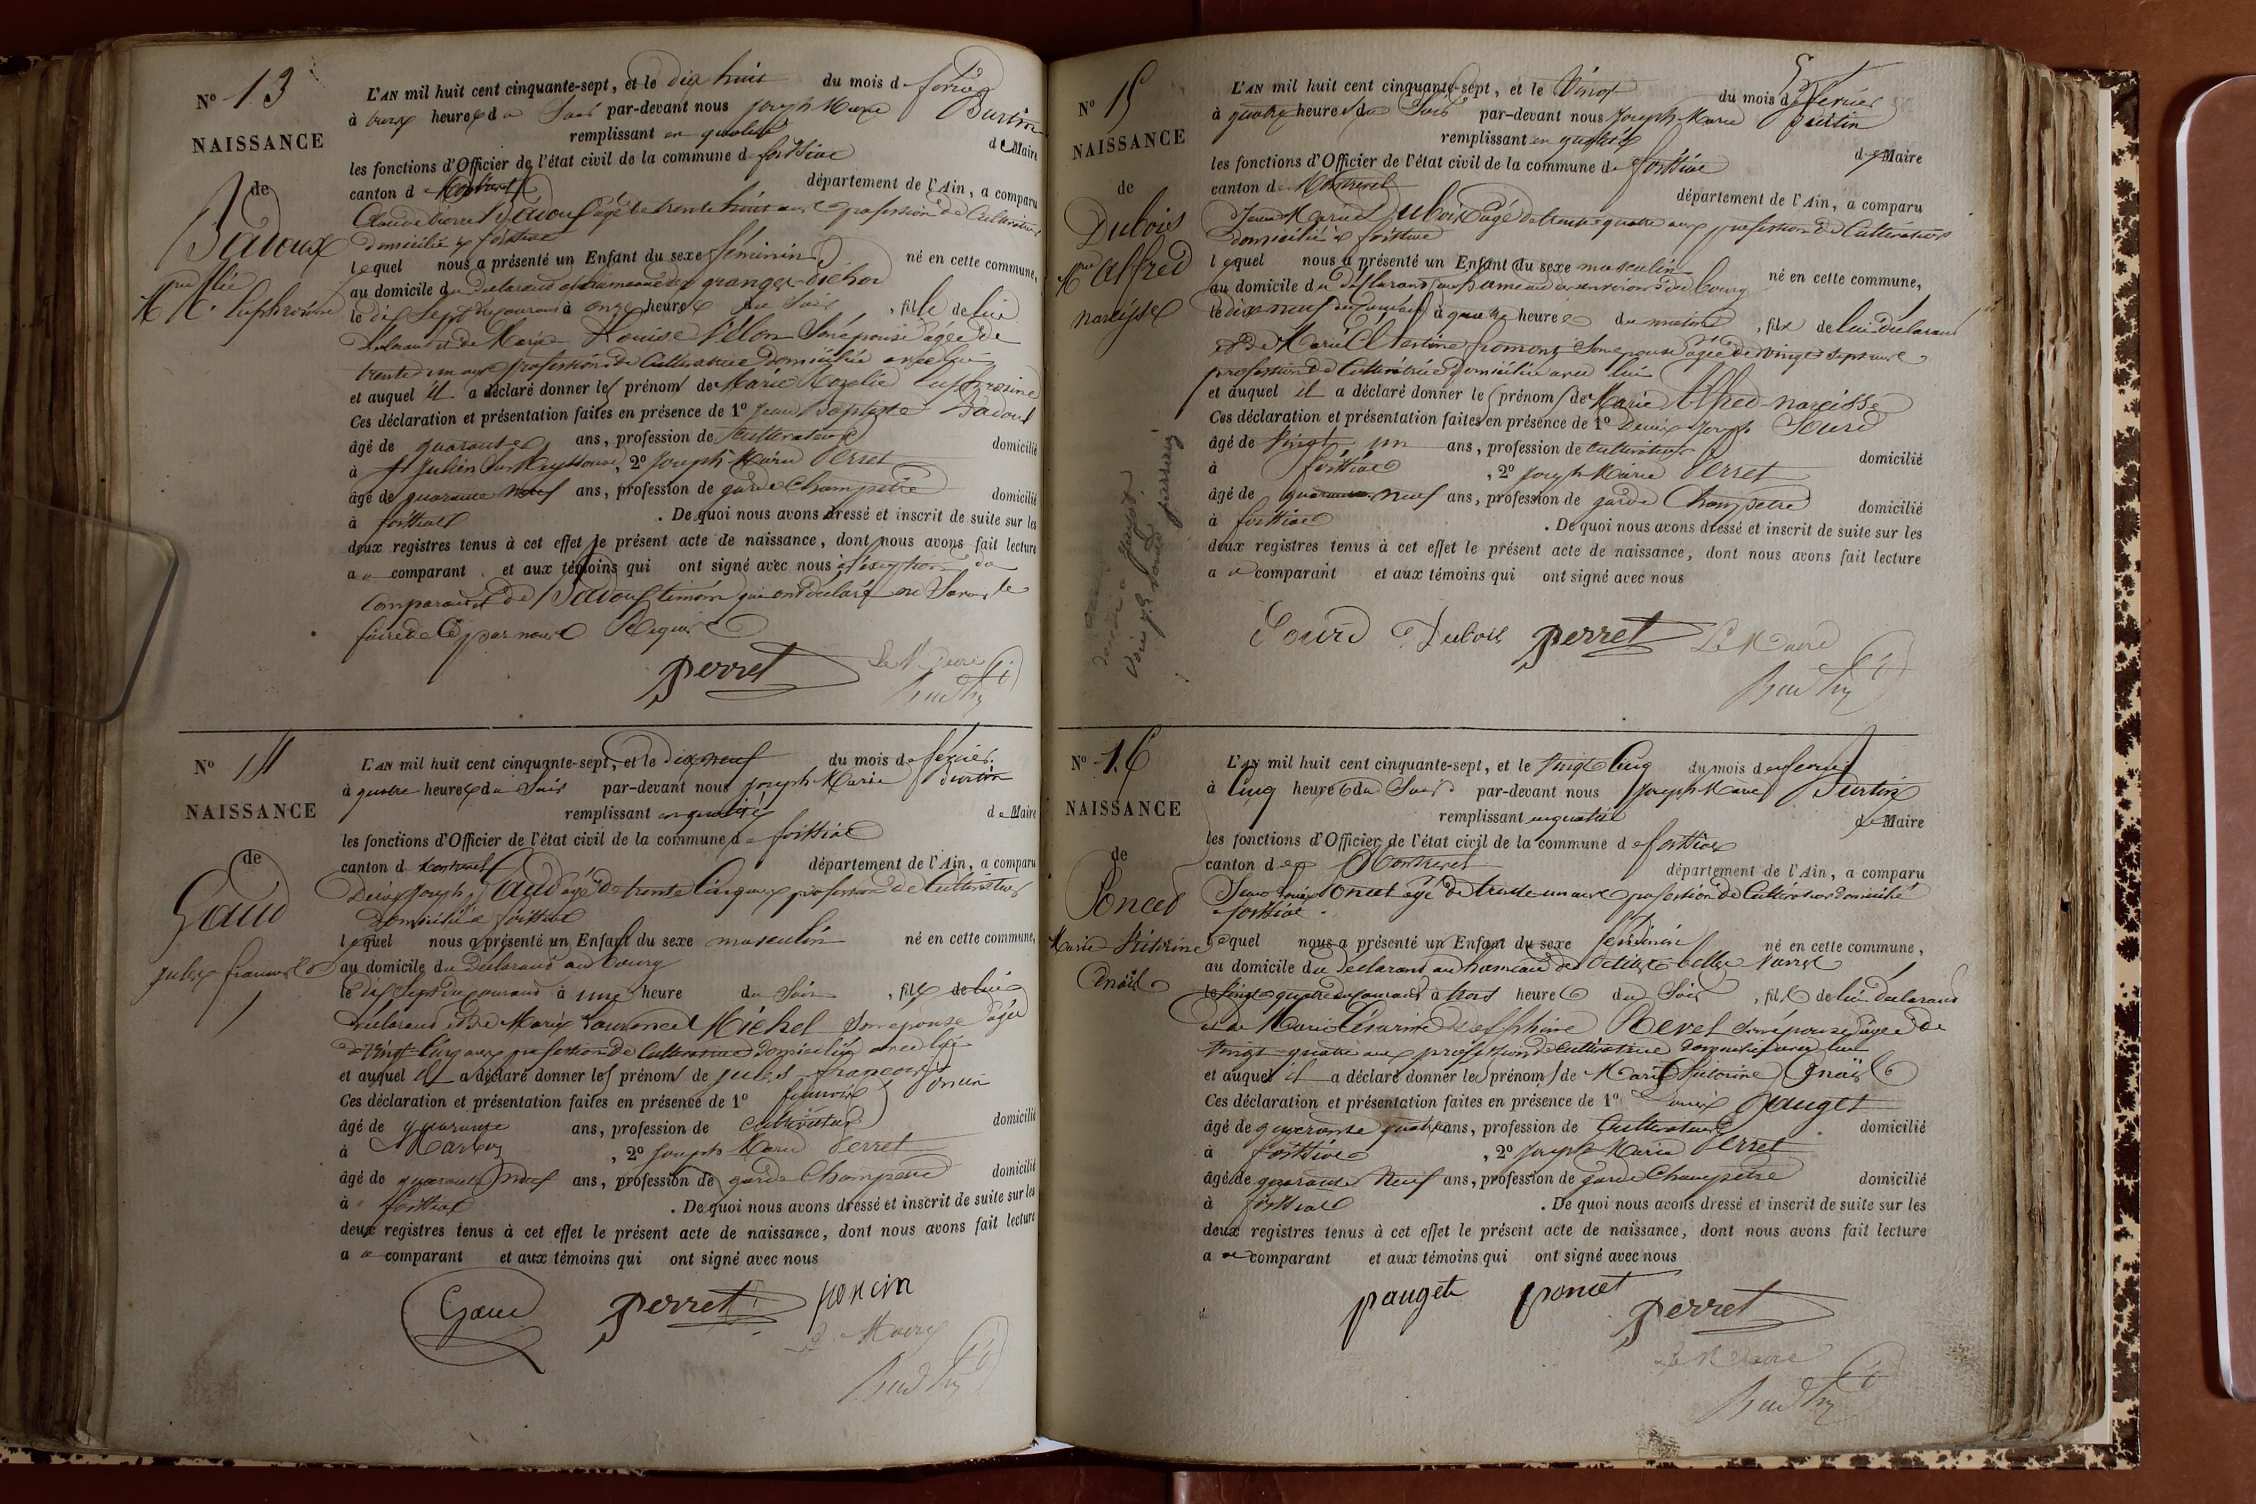 N° 13
NAISSANCE
de
Badoux
Mie
L'AN mil huit cent cinquante-sept, et le dix huit du mois de février
à onze heures du Soir par-devant nous Joseph Marie Burtin
remplissant en qualité de Maire
les fonctions d'Officier de l'état civil de la commune de foissiat
canton de Montrevel département de l'Ain, a comparu
Claude Marie Badoux âgé de trente huit ans profession de Cultivateur
domicilié à foissiat
lequel nous a présenté un Enfant du sexe féminin né en cette commune,
au domicile du declarant au hameau des granges
le dix sept du courant à onze heures du Soir, fille de lui
declarant et de Marie Louise Son épouse âgée de
trente un ans profession de Cultivatrice Domiciliée avec lui
et auquel il a déclaré donner les prénoms de Marie Rozalie Euphrosine
Ces déclaration et présentation faites en présence de 1° Jean Baptiste Badoux
âgé de quarante ans, profession de Cultivateur domicilié
à St Julien sur Reyssouze, 2° Joseph Marie Perret
âgé de quarante neuf ans, profession de garde Champetre domicilié
à foissiat. De quoi nous avons dressé et inscrit de suite sur les
deux registres tenus à cet effet le présent acte de naissance, dont nous avons fait lecture
au comparant et aux témoins qui ont signé avec nous à l'exception du
Comparant et de Badoux témoin qui ont déclaré ne Savoir le
faire de ce par nous Requis
perret Le Maire
Burtin
N° 14
NAISSANCE
de
Gaud
jules francois
L'AN mil huit cent cinquante-sept, et le dix neuf du mois de fevrier
à quatre heures du Soir par-devant nous Joseph Marie Burtin
remplissant en qualité de Maire
les fonctions d'Officier de l'état civil de la commune de foissiat
canton de Montrevel département de l'Ain, a comparu
Denis Joseph Gaud âgé de trente Cinq ans profession de Cultivateur
Domicilié à foissiat
lequel nous a présenté un Enfant du sexe masculin né en cette commune,
au domicile du Declarant au bourg
le dix Sept du courant à une heure du Soir, fils de lui
declarant et de Marie Laurence Michel Son épouse âgée
de Vingt Cinq ans profession De Cultivatrice domiciliée avec lui
et auquel il a déclaré donner les prénoms de jules francois
Ces déclaration et présentation faites en présence de 1° françois poncin
âgé de quarante ans, profession de Cultivateur domicilié
à Marboz, 2° Joseph Marie Perret
âgé de quarante neuf ans, profession de garde Champetre domicilié
à foissiat. De quoi nous avons dressé et inscrit de suite sur les
deux registres tenus à cet effet le présent acte de naissance, dont nous avons fait lecture
au comparant et aux témoins qui ont signé avec nous
Gaud perret poncin
Le Maire
Burtin
N° 15
NAISSANCE
de
Dubois
Mie Alfred
narcisse
L'AN mil huit cent cinquante-sept, et le Vingt du mois de février
à quatre heures du Soir par-devant nous Joseph Marie Burtin
remplissant en qualité de Maire
les fonctions d'Officier de l'état civil de la commune de foissiat
canton de Montrevel département de l'Ain, a comparu
Jean Marie Dubois âgé de trente quatre ans profession de Cultivateur
domicilié à foissiat
lequel nous a présenté un Enfant du sexe masculin né en cette commune,
au domicile du déclarant au hameau des environs du bourg
le dix neuf du courant à quatre heures du matin, fils de lui declarant
et de Marie Clementine fromont Son épouse âgée de vingt sept ans
profession de Cultivatrice domiciliée avec lui
et auquel il a déclaré donner les prénoms de Marie Alfred narcisse
Ces déclaration et présentation faites en présence de 1° Denis Joseph Sourd
âgé de Vingt un ans, profession de Cultivateur domicilié
à foissiat, 2° Joseph Marie Perret
âgé de quarante neuf ans, profession de garde Champetre domicilié
à foissiat. De quoi nous avons dressé et inscrit de suite sur les
deux registres tenus à cet effet le présent acte de naissance, dont nous avons fait lecture
au comparant et aux témoins qui ont signé avec nous
Sourd Dubois perret Le Maire
Burtin
N° 16
NAISSANCE
de
Poncet
Marie Victorine
Anaïs
L'AN mil huit cent cinquante-sept, et le Vingt Cinq du mois de fevrier
à Cinq heures du Soir par-devant nous Joseph Marie Burtin
remplissant en qualité de Maire
les fonctions d'Officier de l'état civil de la commune de foissiat
canton de Montrevel département de l'Ain, a comparu
Jean Louis Poncet âgé de trente un ans profession de Cultivateur domicilié
à foissiat
lequel nous a présenté un Enfant du sexe féminin né en cette commune,
au domicile du Declarant au hameau de
le Vingt quatre du courant à trois heures du Soir, fille de lui declarant
et de Marie Césarine Delphine Revel Son épouse âgée de
Vingt quatre ans profession de Cultivatrice domiciliée avec lui
et auquel il a déclaré donner les prénoms de Marie Victorine Anaïs
Ces déclaration et présentation faites en présence de 1° Denis Pauget
âgé de quarante quatre ans, profession de Cultivateur domicilié
à foissiat, 2° Joseph Marie Perret
âgé de quarante Neuf ans, profession de garde Champetre domicilié
à foissiat. De quoi nous avons dressé et inscrit de suite sur les
deux registres tenus à cet effet le présent acte de naissance, dont nous avons fait lecture
au comparant et aux témoins qui ont signé avec nous
pauget poncet perret
Le Maire
Burtin